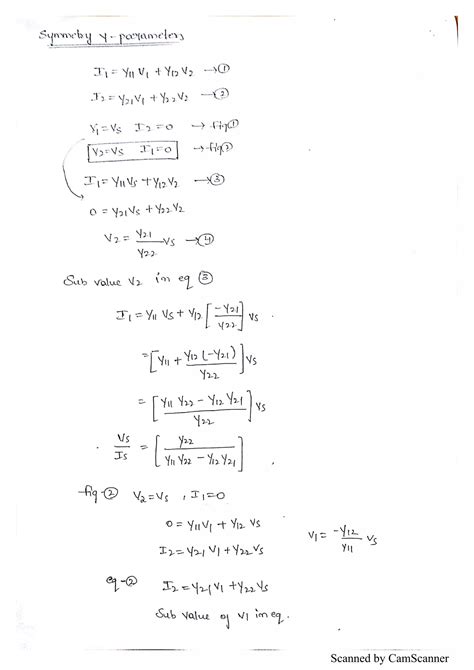 Symmetry Y-parameters
I1 = Y11 V1 + Y12 V2 → ①
I2 = Y21 V1 + Y22 V2 → ②
V1 = Vs I2 = 0 → fig ①
V2 = Vs I1 = 0 → fig ②
I1 = Y11 Vs + Y12 V2 → ③
0 = Y21 Vs + Y22 V2
V2 = Y21/Y22 Vs → ④
Sub value V2 in eq ③
I1 = Y11 Vs + Y12 [-Y21/Y22] Vs
= [Y11 + Y12 (-Y21)/Y22] Vs
= [Y11 Y22 - Y12 Y21/Y22] Vs
Vs/Is = [Y22/Y11 Y22 - Y12 Y21]
fig-② V2 = Vs , I1 = 0
0 = Y11 V1 + Y12 Vs
V1 = -Y12/Y11 Vs
I2 = Y21 V1 + Y22 Vs
eq-② I2 = Y21 V1 + Y22 Vs
Sub value of V1 in eq.
Scanned by CamScanner